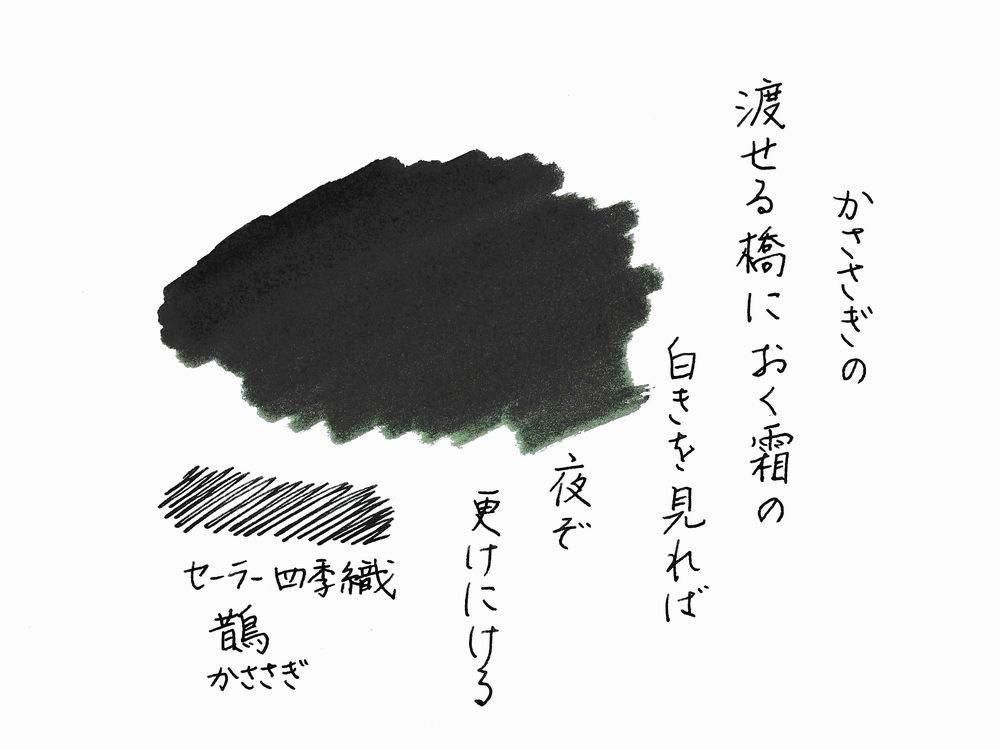 かささぎの
渡せる橋におく霜の
白きを見れば
夜ぞ
更けにける
セーラー四季織
鵲
かささぎ